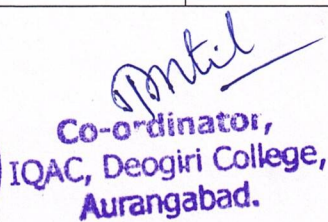 Co-ordinator,
IQAC, Deogiri College,
Aurangabad.